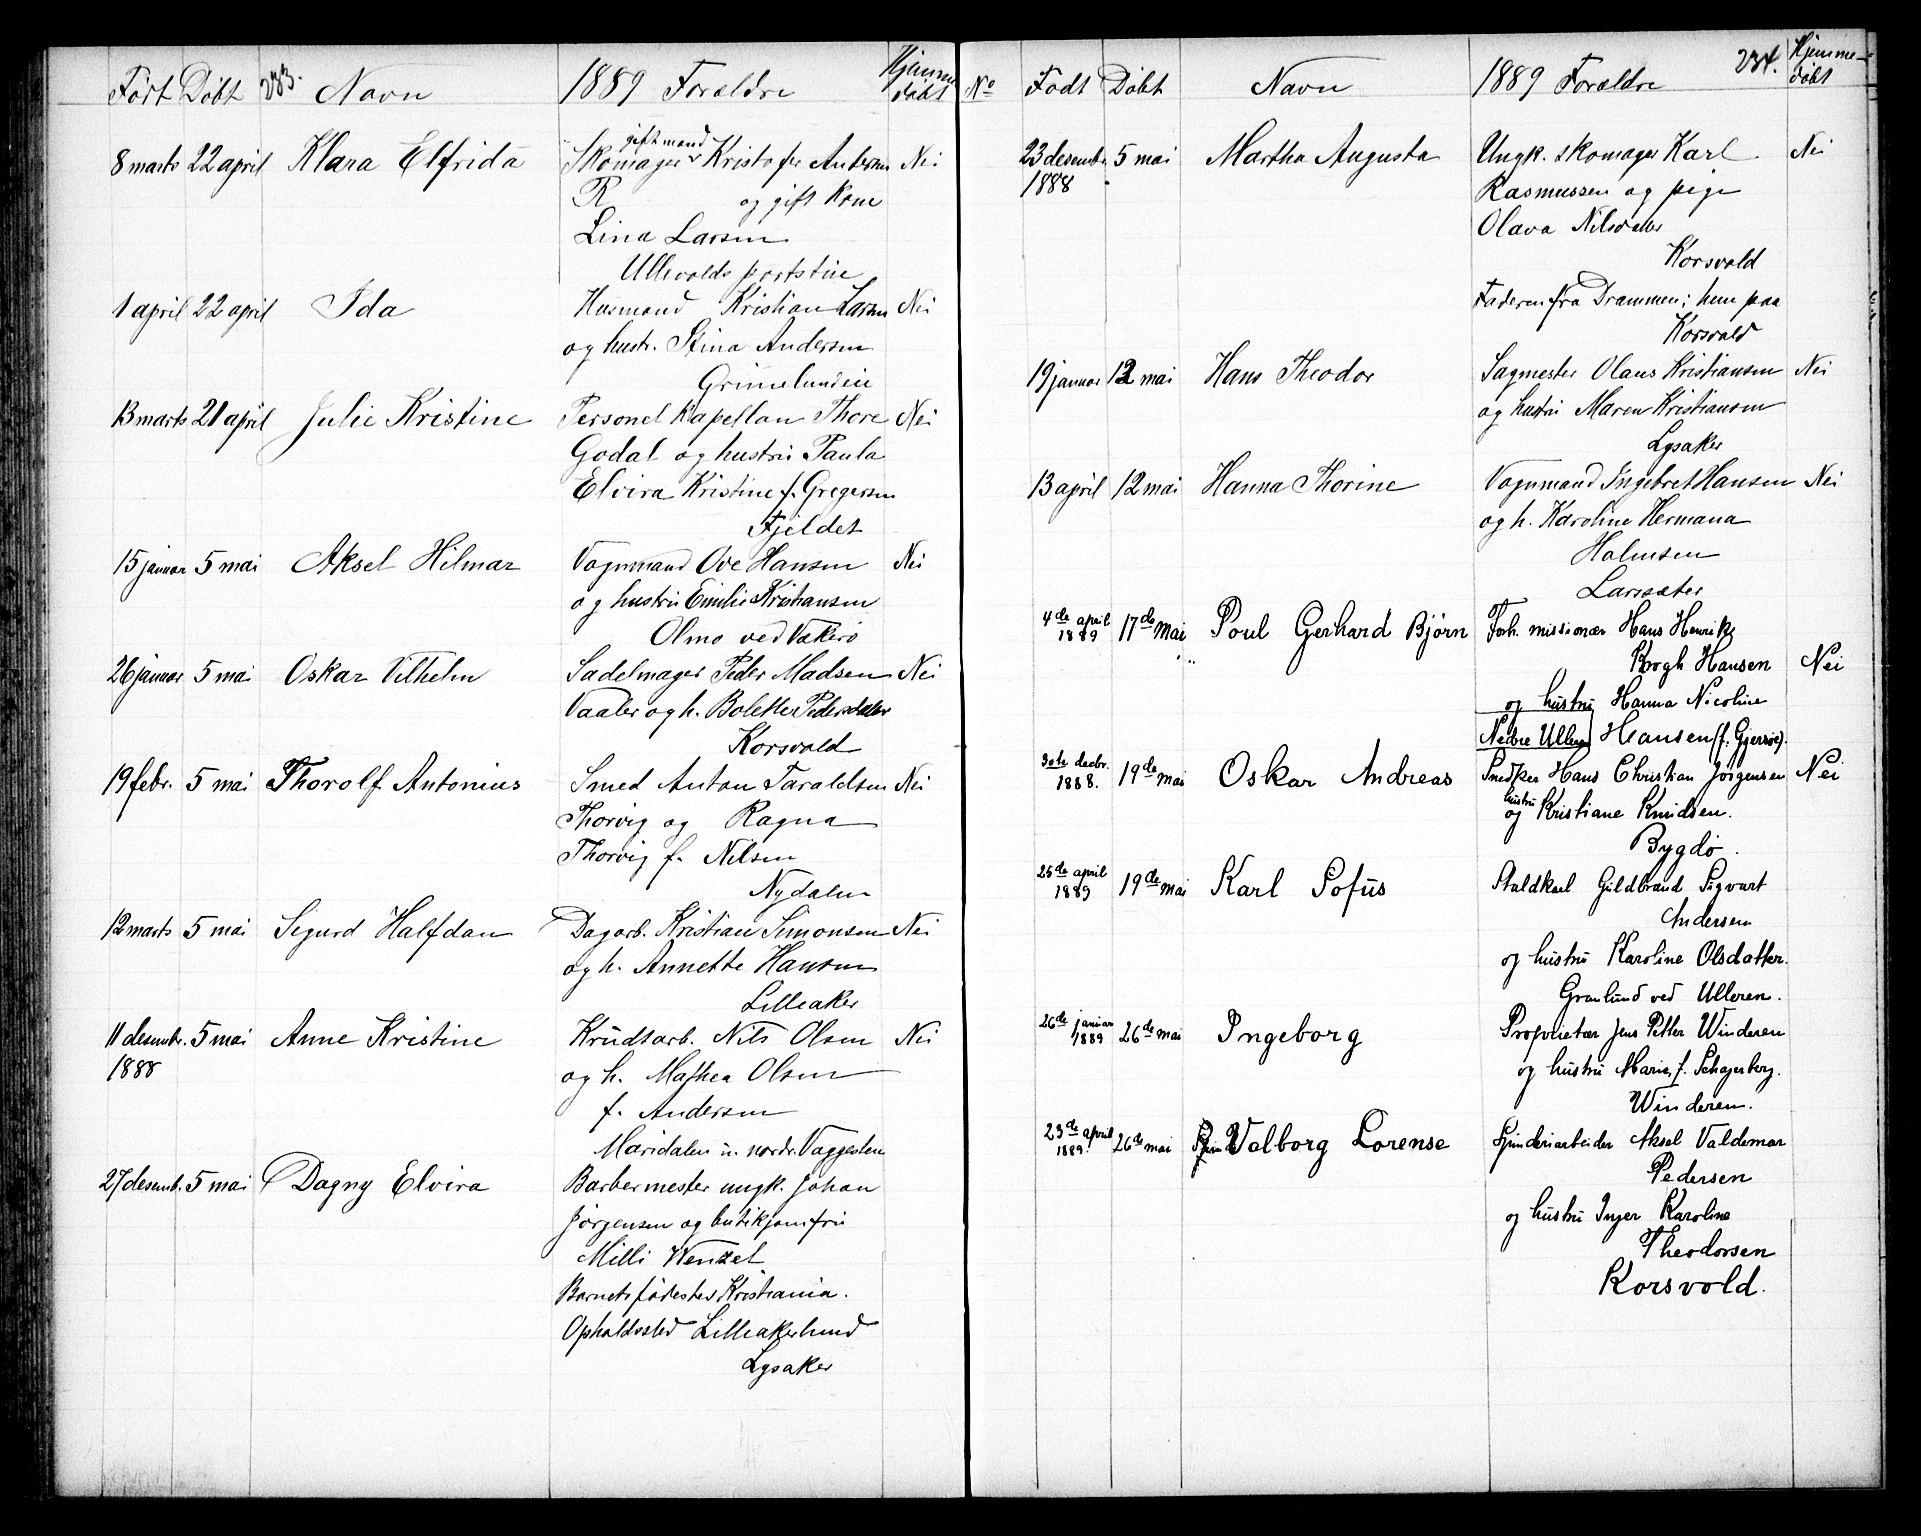 Født Døbt 233. Navn 1889 Forældre Hjemme
døbt
8 marts 22 april Klara Elfrida Skomager gift mand Kristofer Andersen Nei
R og gift kone
Lina Larsen
Ullevolds portstue
1 april 22 april Ida Husmand Kristian Larsen Nei
og hustr. Stina Andersen
Grimelundeie
13 marts 21 april Julie Kristine Personel kapellan Thore Nei
Godal og hustru Paula
Elvira Kristine f. Gregersen
Fjeldet
15 januar 5 mai Aksel Hilmar Vognmand Ove Hansen Nei
og hustru Emilie Kristiansen
Olmo ved Vækerø
26 januar 5 mai Oskar Vilhelm Sadelmager Peder Madsen Nei
Vaaler og h. Bolette Pedersdatter
Korsvold
19 febr. 5 mai Thorolf Antonius Smed Anton Taraldsen Nei
Thorvig og Ragna
Thorvig f. Nilsen
Nydalen
12 marts 5 mai Sigurd Halfdan Dagarb. Kristian Simonsen Nei
og h. Annette Hansen
Lilleaker
11 desembr. 5 mai Anne Kristine Krudtarb. Nils Olsen Nei
1888 og h. Mathea Olsen
f. Andersen
Maridalen u. nordr. Vaggesten
27 desemb. 5 mai Dagny Elvira Barbermester ungk. Johan
Jørgensen og butikjomfru
Milli Wenzel
Barnets fødested Kristiania.
Opholdssted Lilleakerlund
Lysaker
No Født Døbt Navn 1889 Forældre 234. Hjemme-
døbt
23 desembr. 5 mai Martha Augusta Ungk. skomager Karl Nei
1888 Rasmussen og pige
Olava Nilsdatter
Korsvold
Faderen fra Drammen; hun paa
Korsvold
19 januar 12 mai Hans Theodor Sagmester Olaus Kristiansen Nei
og hustru Maren Kristiansen
Lysaker
13 april 12 mai Hanna Thorine Vognmand Ingebret Hansen Nei
og h. Karoline Hermana
Holmsen
Larssæter
4de april 17de mai Poul Gerhard Bjørn Forh. missionær Hans Henrik
1889 Krogh Hansen Nei
og hustru Hanna Nicoline
Nedre Ullern Hansen (f. Gjersøe).
30te decbr. 19de mai Oskar Andreas Snedker Hans Christian Jørgensen Nei
1888. og hustru Kristiane Knudsen.
Bygdø.
25de april 19de mai Karl Sofus Staldkarl Guldbrand Sigvart
1889 Andersen
og hustru Karoline Olsdatter.
Granlund ved Ulleren.
26de januar 26de mai Ingeborg Proprietær Jens Petter Winderen
1889 og hustru Marie, f. Schajerberg.
Winderen.
23de april 26de mai Valborg Lorense Spinderiarbeider Aksel Valdemar
1889. Pedersen
og hustru Inger Karoline
Theodorsen
Korsvold.